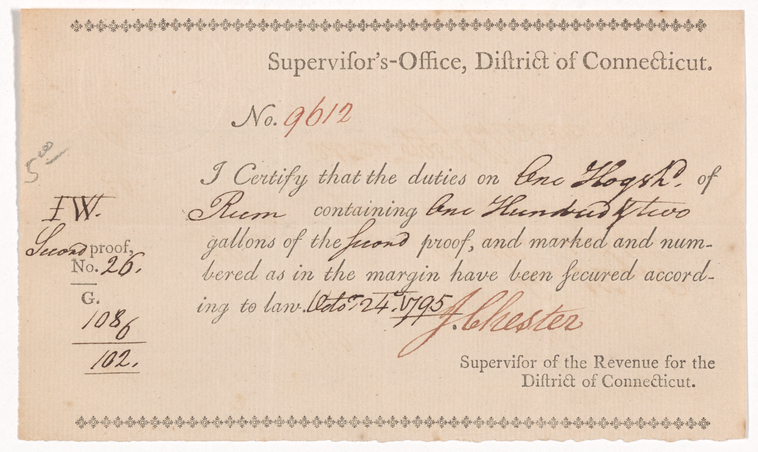 Superviſor's-Office, Diſtrict of Connecticut.
No. 9612
5.00
I Certify that the duties on One Hogshd. of
Rum containing One Hundred & two
gallons of the ſecond proof, and marked and num-
bered as in the margin have been ſecured accord-
ing to law. Octor. 24. 1795
J. Chester
Superviſor of the Revenue for the
Diſtrict of Connecticut.
IW.
Second proof,
No. 26.
G.
108
6
102.